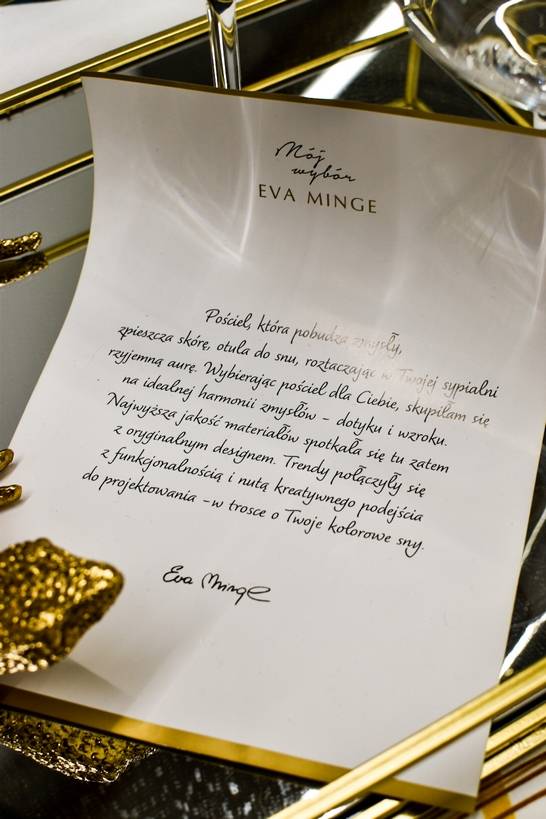 Mój
wybór
EVA MINGE
Pościel, która pobudza zmysły,
zpieszcza skórę, otula do snu, roztaczając w Twojej sypialni
rzyjemną aurę. Wybierając pościel dla Ciebie, skupiłam się
na idealnej harmonii zmysłów – dotyku i wzroku.
Najwyższa jakość materiałów spotkała się tu zatem
z oryginalnym designem. Trendy połączyły się
z funkcjonalnością i nutą kreatywnego podejścia
do projektowania – w trosce o Twoje kolorowe sny.
Eva Minge